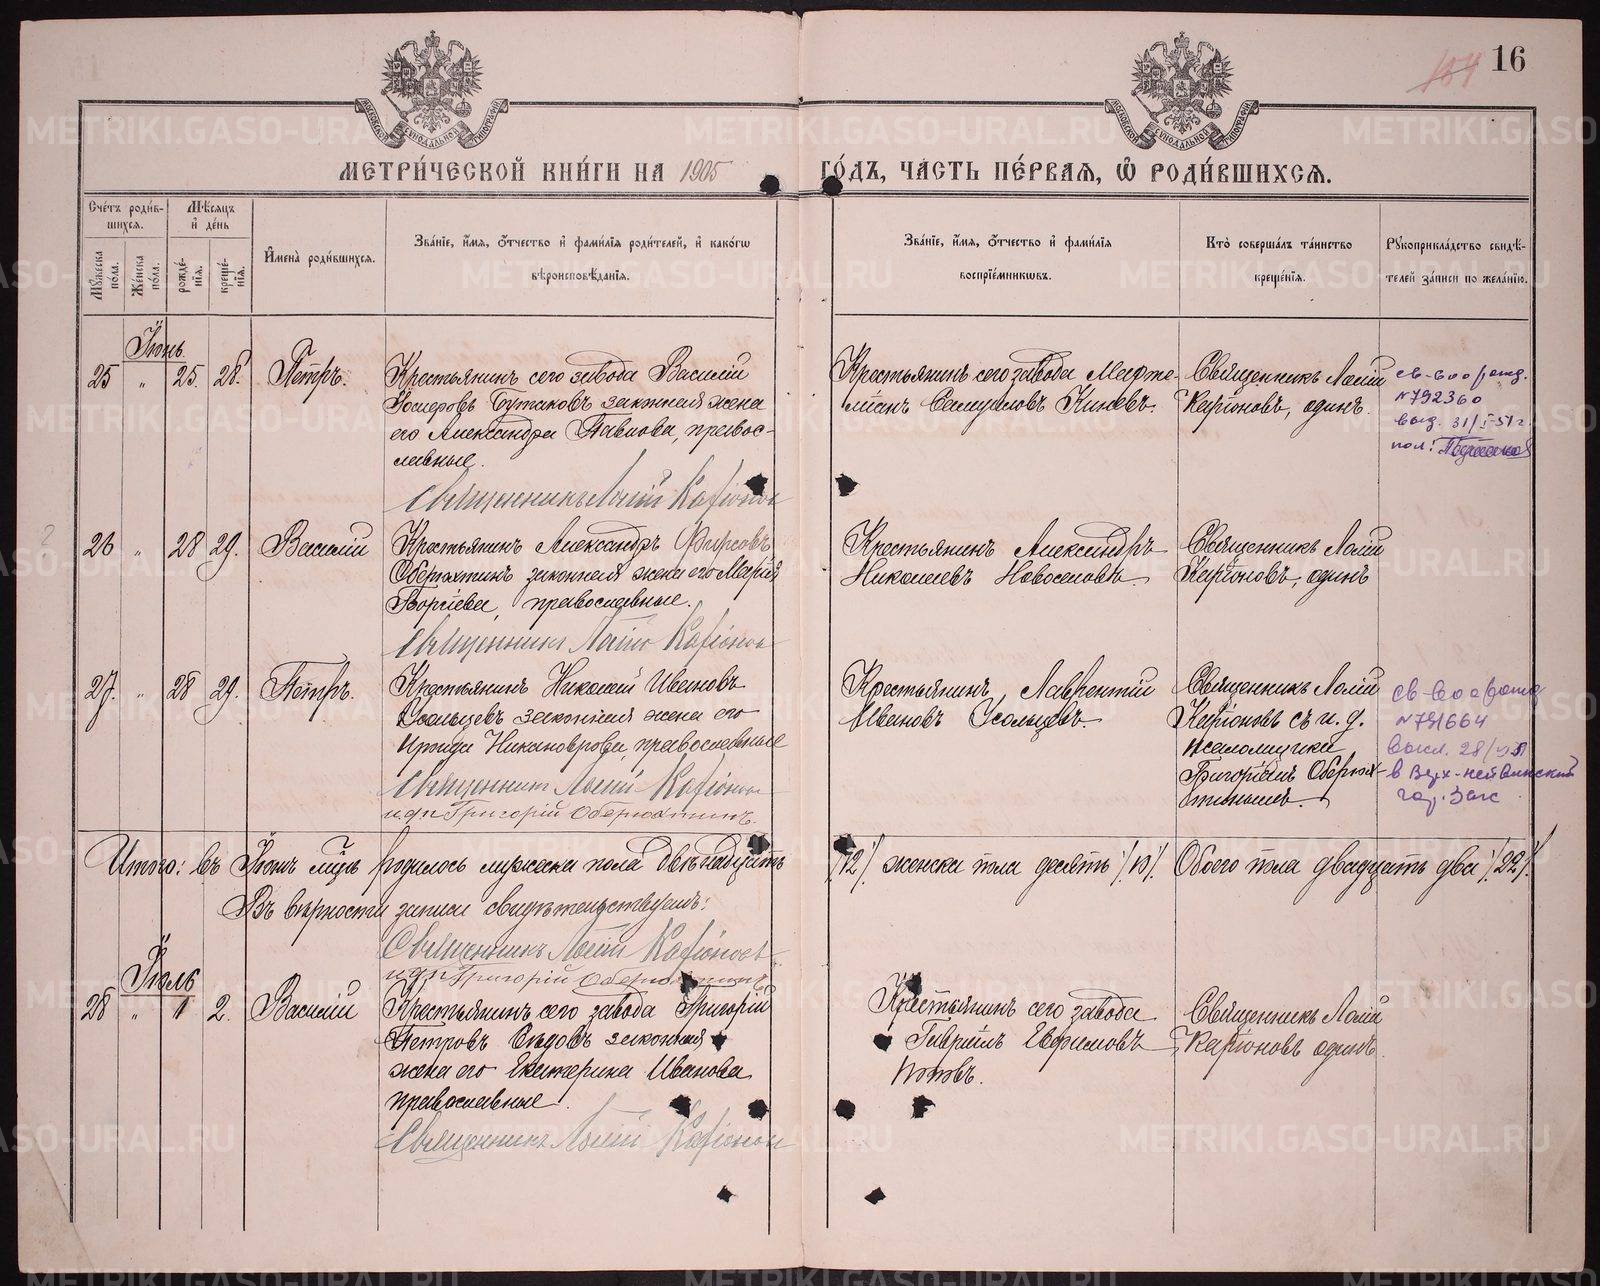 16
МЕТРИ́ЧЕСКОЙ КНИ́ГИ НА 1905 ГО́ДЪ, ЧА́СТЬ ПЕ́РВАЯ, Ѿ РОДИ́ВШИХСЯ.
Сче́тъ роди́в-
шихся.
Мѣсяцъ
и де́нь
Мꙋжеска
пола.
Же́нска
по́ла.
рожде́-
нїя.
креще́-
нїя.
Имена̀ роди́вшихся.
Зва́нїе, и́мя, о́тчество и фами́лїя роди́телей, и како́гѡ
вѣроисповѣ́данїя.
Зва́нїе, и́мя, о́тчество и фами́лїя
воспрїе́мникѡвъ.
Кто̀ соверша́лъ та́инство
креще́нїя.
Рꙋкоприкла́дство свидѣ́-
телей за́писи по жела́нїю.
Іюнь
25 " 25. 28. Петръ.
Крестьянинъ сего завода Василій
Бутаковъ законная жена
его Александра Павлова, правос-
лавные.
Священникъ Каріоновъ
Крестьянинъ сего завода
Самуиловъ
Священникъ
Каріоновъ, одинъ.
св-во о рожд.
№792360
выд. 31/I-51г.
пол:
26 " 28 29. Василій
Крестьянинъ Александръ Фирсовъ
Оберюхтинъ законная жена его Марія
православные.
Священникъ Каріоновъ
Крестьянинъ Александръ
Николаевъ Новоселовъ
Священникъ
Каріоновъ, одинъ
27. " 28 29. Петръ.
Крестьянинъ Николай Ивановъ
Усольцевъ законная жена его
Никанорова, православные
Священникъ Каріоновъ
и д п Григорій Оберюхтинъ.
Крестьянинъ Лаврентій
Ивановъ Усольцевъ.
Священникъ
Каріоновъ съ и. д.
псаломщика
Григоріемъ Оберюх-
тинымъ.
св-во о рожд
в Верх-Нейвинский
гор. Загс
Итого: въ Іюнѣ м-цѣ родилось мужска пола двѣнадцать /12/. женска пола десять /10/. Обоего пола двадцать два /22/.
Въ вѣрности записи свидѣтельствуемъ:
Священникъ Каріоновъ
и д п Григорій Оберюхтинъ
Іюль
28 " 1 2. Василій
Крестьянинъ сего завода Григорій
Петровъ Сѣдовъ законная
жена его Екатерина Иванова
православные.
Священникъ Каріоновъ
Крестьянинъ сего завода
Гавріилъ Евфимовъ
Священникъ
Каріоновъ одинъ.
METRIKI.GASO-URAL.RU